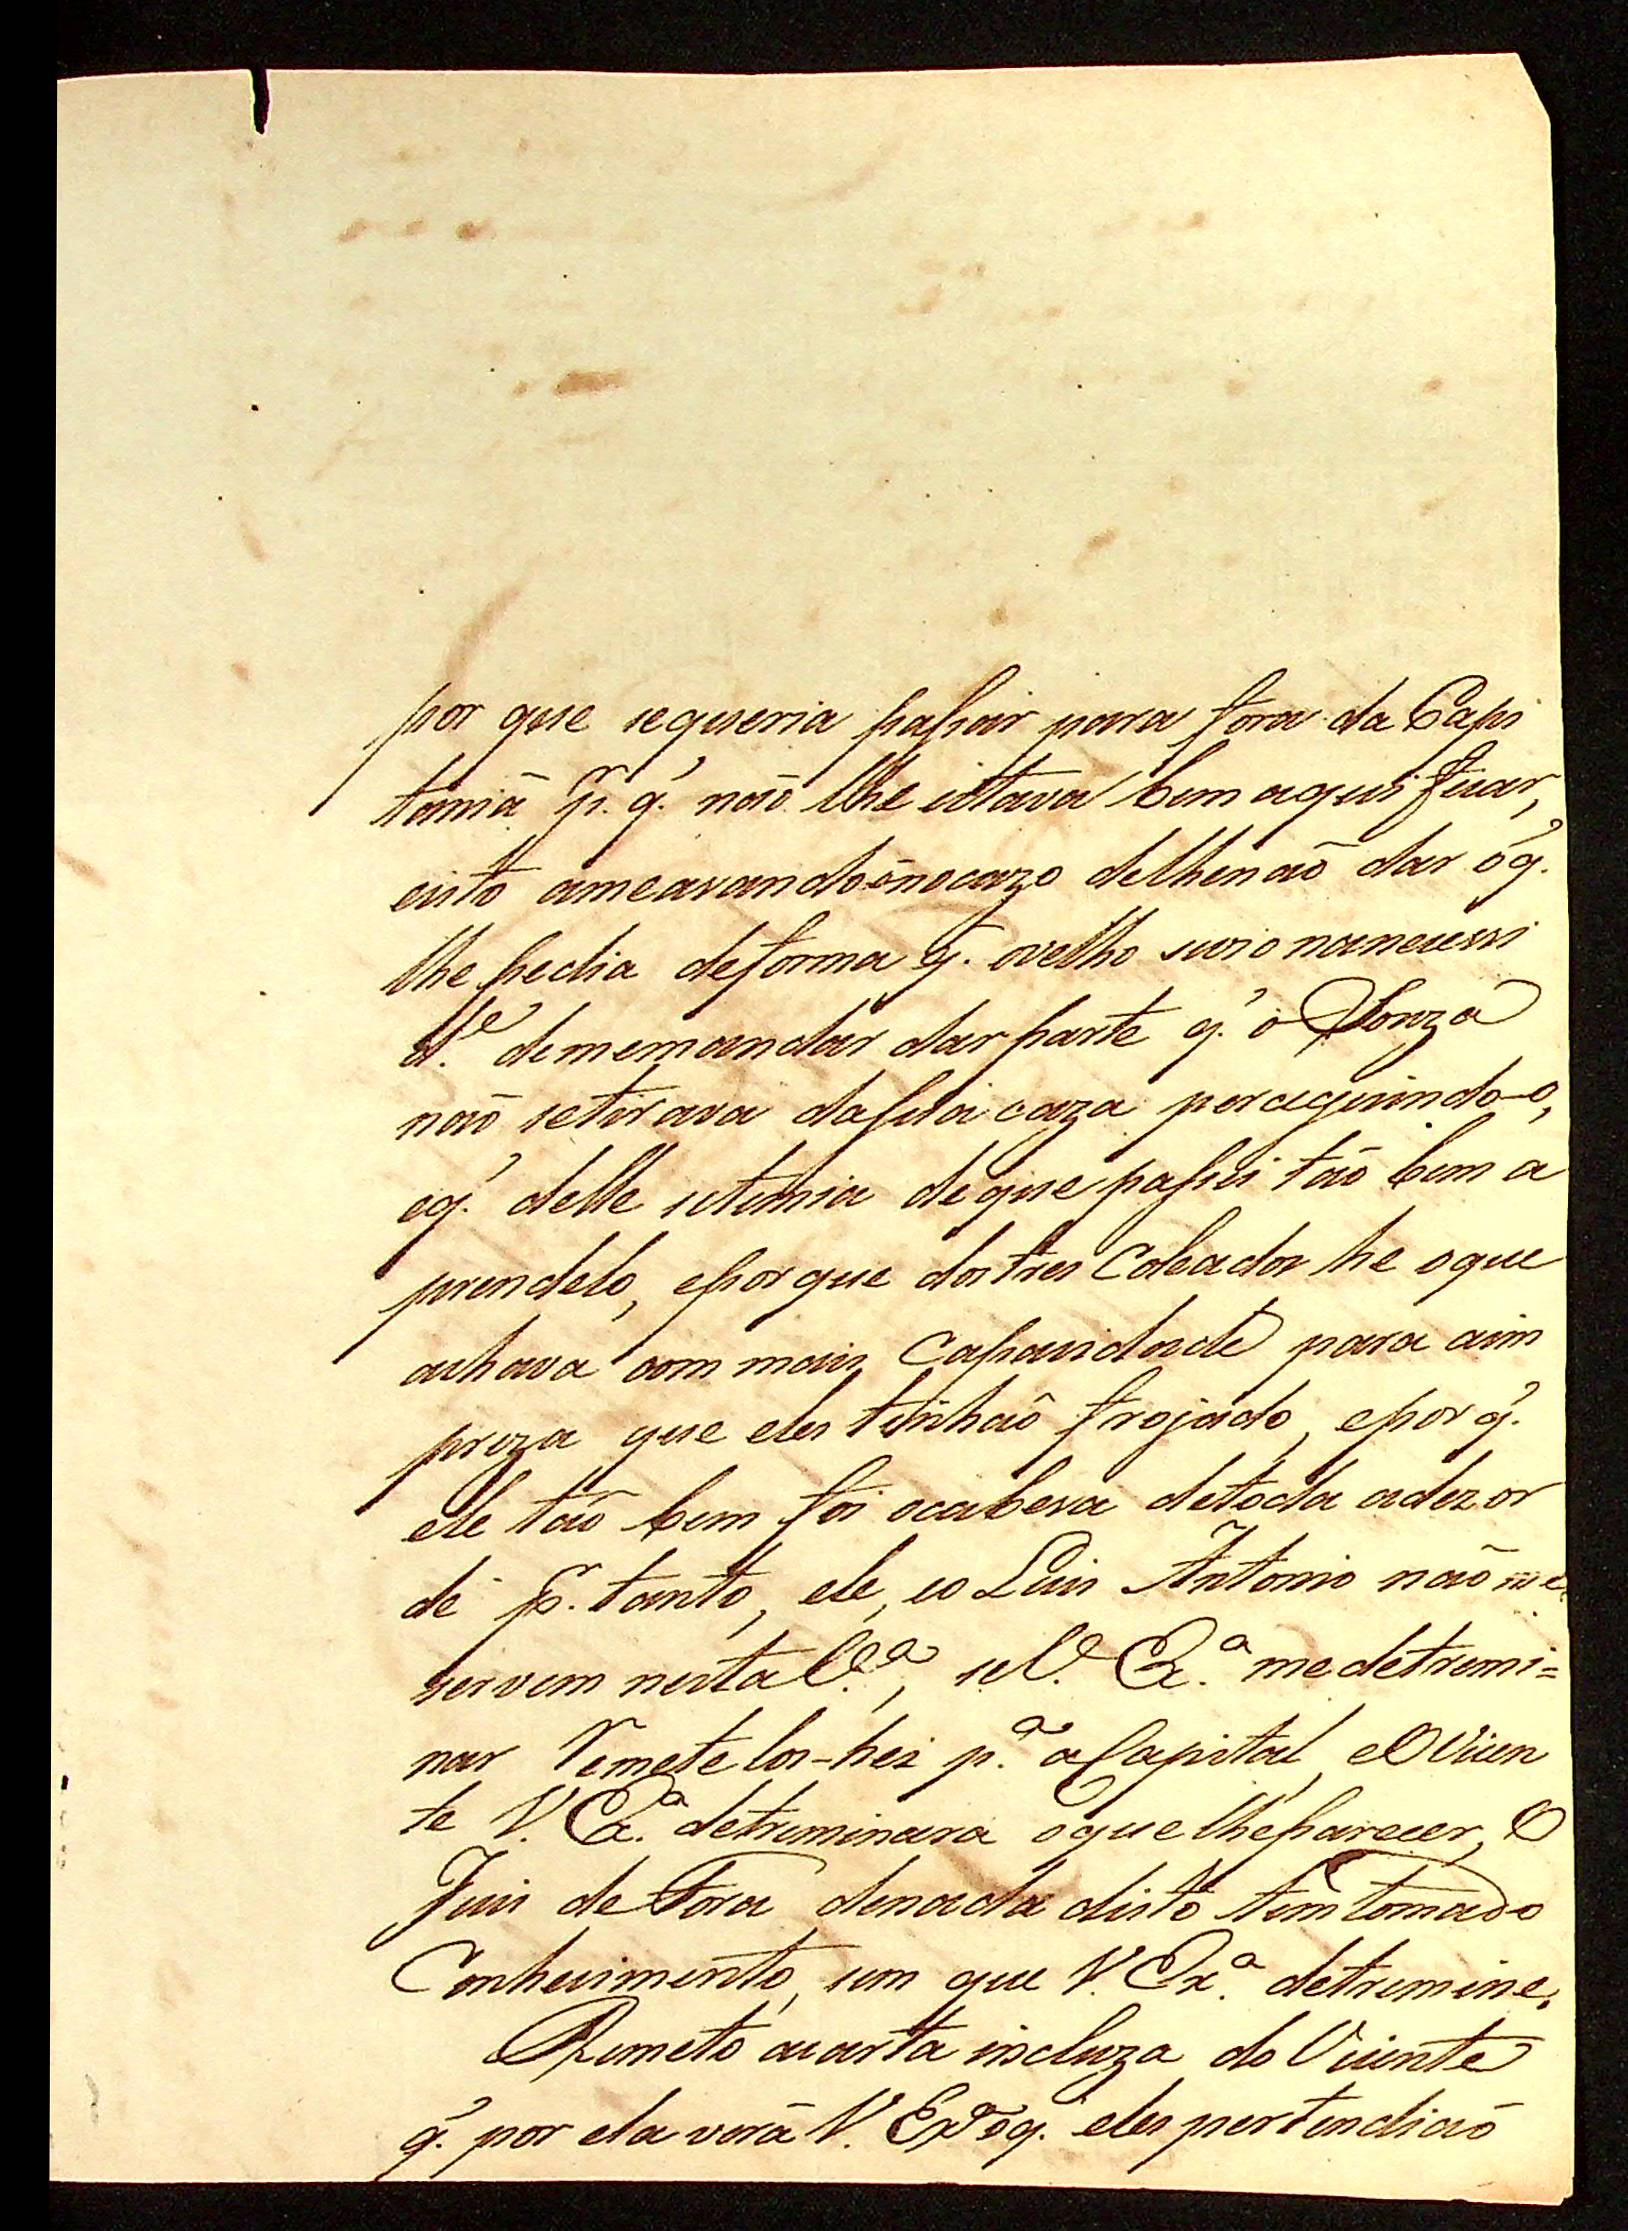 por que sequeria passar para fora da Capi
tania p.r q.' não lhe istava bem aqui ficar,
eisto ameasando-o nocazo delhenaõ dar oq.'
lhe pedia deforma q.' ovelho sevio nanecessi
d.e dememandar dar parte q.' o Souza
naõ setirava dasua caza perceguindo-o,
eq.' delle setimia deque passei taõ bem a
prendelo, eporque dostres Cabeados he oque
achava com mais Capacidade para aim
preza que eles tinhaõ frojado, epor q.'
ele taõ bem foi ocabesa detoda adezor
de p.r tanto, ele, eo Luis Antonio naõ me
servem nesta V.a, seV. Ex.a me detremi=
nar Remetelos-hei p.a aCapital, eOVicen
te V. Ex.a detreminara oque lheparecer, O
Juis de Fora denada disto tem tomado
Conhecimento, sem que V. Ex.a detremine.
Remeto acarta incluza do Vicente
q.' por ela verá V. Ex.a oq.' eles pertendiaõ